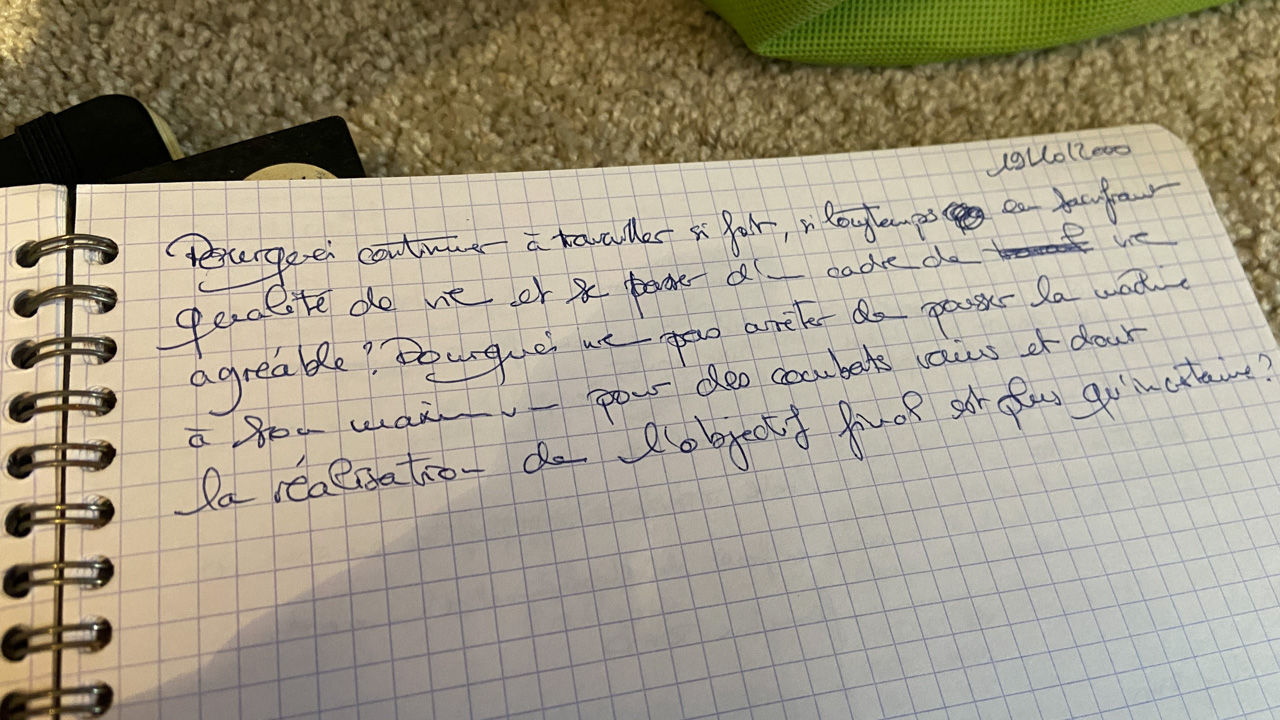 19/10/2000
Pourquoi continuer à travailler si fort, si longtemps en sacrifiant
qualité de vie et se passer d'un cadre de vie
agréable ? Pourquoi ne pas arrêter de pousser la machine
à son maximum pour des combats vains et dont
la réalisation de l'objectif final est plus qu'incertaine ?